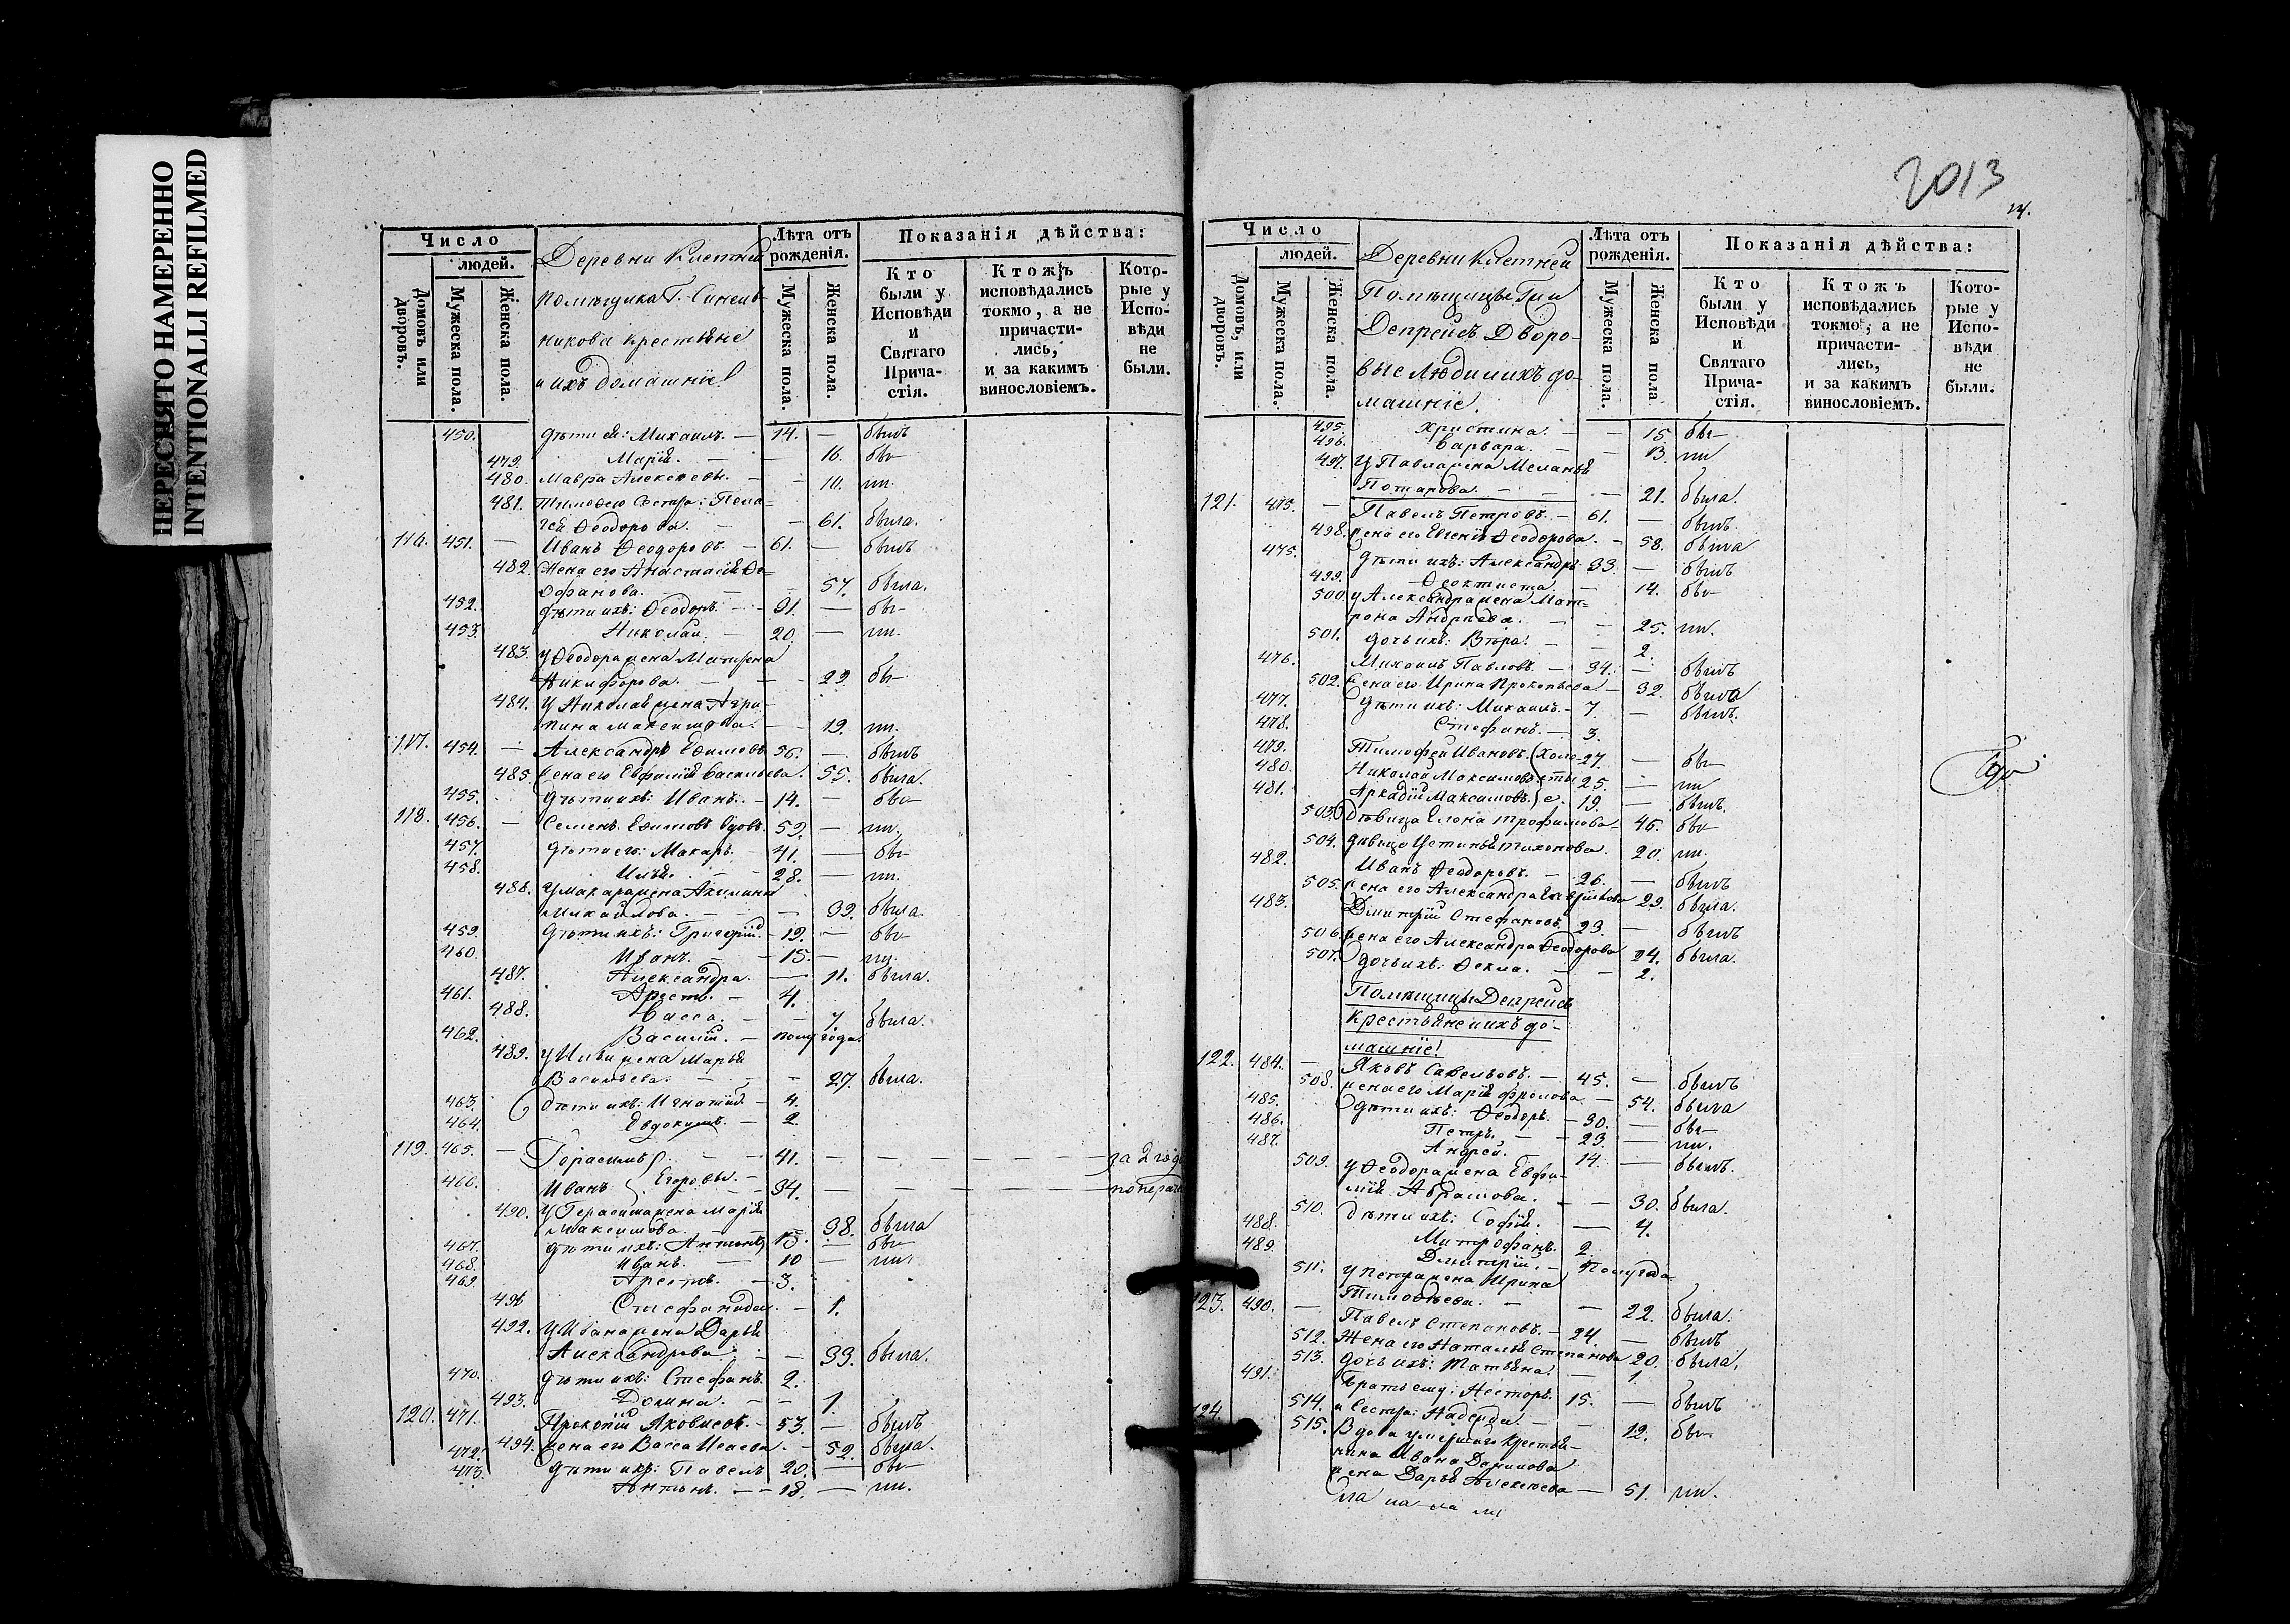 ПЕРЕСНЯТО НАМЕРЕННО
INTENTIONALLI REFILMED
Число
людей.
Домовъ или дворовъ.
Мужеска пола.
Женска пола.
Деревни Клетней
помѣщика Г.
крестьяне
и ихъ домашніе!
Лѣта отъ рожденія.
Мужеска пола.
Женска пола.
Показанія дѣйства:
Кто были у Исповѣди и Святаго Причастія.
Ктожъ исповѣдались токмо, а не причастились, и за какимъ винословіемъ.
Которые у Исповѣди не были.
450. дѣти ей: Михаилъ. — 14. — былъ
479. Марія. — — 16.
480. Мавра Алексеева. — — 10.
481. Тимоѳею Сестра: Пела-
гея Ѳеодорова. — — 61. была.
116. 451. — Иванъ Ѳеодоровъ. — 61. — былъ
482. Жена его Анастасія
57. была.
452. дѣти ихъ: Ѳеодоръ. — 31. —
453. Николай. — 20. —
483. у Ѳеодора жена Матрена
Никифорова. — — 29.
484. У Николая жена Агри-
пина Максимова. — — 19.
117. 454. — Александръ Ефимовъ 56. — былъ
485. Жена его Евфимія Васильева. 55. была.
455. дѣти ихъ: Иванъ. — 14. —
118. 456. — Семенъ Ефимовъ вдовъ. 59. —
457. дѣти его: Макаръ. — 41. —
458. Илья. — 28. —
486. У Макара жена Акилина
Михайлова. — — 39. была
459. дѣти ихъ: Григорій. — 19. —
460. Иванъ. — 15. —
487. Александра. — 11. была.
461. — 4.
488. Васса. — — 7. была.
462. Василій. — полугода.
489. У Ильи жена Марья
Васильева. — — 27. была.
463. Дѣти ихъ: Игнатій. — 4.
464. Евдокимъ. — 2.
119. 465. — Герасимъ — 41. — — — за 2 года
466. Иванъ } Егоровы. — 34. — — —
490. У Герасима жена Марія
Максимова. — — 38. была
467. дѣти ихъ: Антонъ 13. —
468. Иванъ. — 10 —
469. — 3.
491 Стефанида. — 1.
492. У Ивана жена Дарья
Александрова. — — 33. была.
470. дѣти ихъ: Стефанъ. 2.
493. Домна. — — 1.
120. 471. Прокопій Яковлевъ. — 53. — былъ
494. жена его Васса Исаева. — 52. была.
472. дѣти ихъ: Павелъ 20. —
473. Антонъ. — 18. —
2013
Число
людей.
Домовъ, или дворовъ.
Мужеска пола.
Женска пола.
Деревни Клетней
Помѣщицы Гжи
Депрейсъ Дворо-
вые Люди и ихъ до-
машніе.
Лѣта отъ рожденія.
Мужеска пола.
Женска пола
Показанія дѣйства:
Кто были у Исповѣди и Святаго Причастія.
Ктожъ исповѣдались токмо, а не причастились, и за какимъ винословіемъ.
Которые у Исповѣди не были.
495. Христина. — — 15.
496. Варвара. — — 13.
497. У Павла жена Меланья
Потапова. — — 21. была.
121. — Павелъ Петровъ. — 61. — былъ.
498. жена его Евгенія Ѳеодорова. — 58. была
475. дѣти ихъ: Александръ 33. — былъ
499. Ѳеоктиста. — 14.
500. у Александра жена Мат-
рона Андреева. — — 25.
501. дочь ихъ: Вѣра. — — 2.
476. Михаилъ Павловъ. — 34. — былъ
502. Жена его Ирина Прокопьева — 32. была
477. дѣти ихъ: Михаилъ. — 7. — былъ.
478. Стефанъ. — 3.
479. Тимофей Ивановъ. (Холо- 27. —
480. Николай Максимовъ сты 25. —
481. Аркадій Максимовъ. } е. 19. — былъ.
503. Дѣвица Елена Трофимова — 46.
504. дѣвица Устинья Тихонова. 20.
482. Иванъ Ѳеодоровъ. — 26. — былъ
505. жена его Александра 29. была.
483. Дмитрій Стефановъ. 23. — былъ
506. жена его Александра Ѳеодорова 24. была.
507. дочь ихъ: Ѳекла. — — 2.
Помѣщицы Депрейсъ
крестьяне и ихъ до-
машніе!
122. 484. — Яковъ Савельевъ. — 45. — былъ
508. жена его Марія Фролова — 54. была
485. дѣти ихъ: Ѳеодоръ. — 30. —
486. Петръ. — 23. —
487. Андрей. 14. — былъ.
509. у Ѳеодора жена Евфи-
мія Абрамова. — — 30. была.
510. дѣти ихъ: Софія. — 4.
488. Митрофанъ. 2.
489. Дмитрій. — Полугода
511. У Петра жена Ирина
Тимоѳеева. — — 22. была.
123. 490. — Павелъ Степановъ. — 24. — былъ
512. Жена его Наталья Степанова 20. была.
513. дочь ихъ: Татьяна. — 1.
491. братъ ему: Несторъ. 15. — былъ
514. и Сестра: Надежда — — 12.
124. 515. Вдова умершаго Крестья-
нина Ивана Данилова
жена Дарья Алексеева — 51.